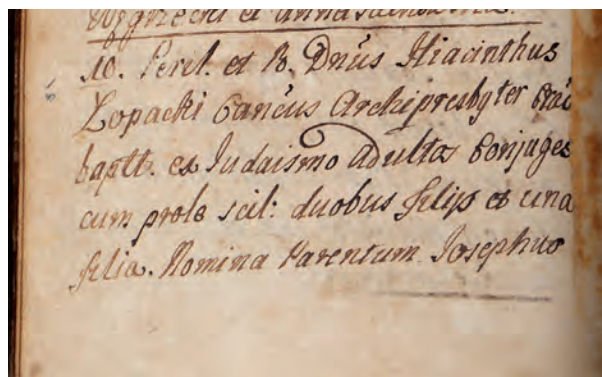 et Anna
10. Peril. et R. Dnus Hiacinthus
Lopacki Cancus Archipresbyter Crac
baptt. ex Iudaismo Adultos Conjuges
cum prole scil: duobus filijs et una
filia. Nomina Parentum Josephus